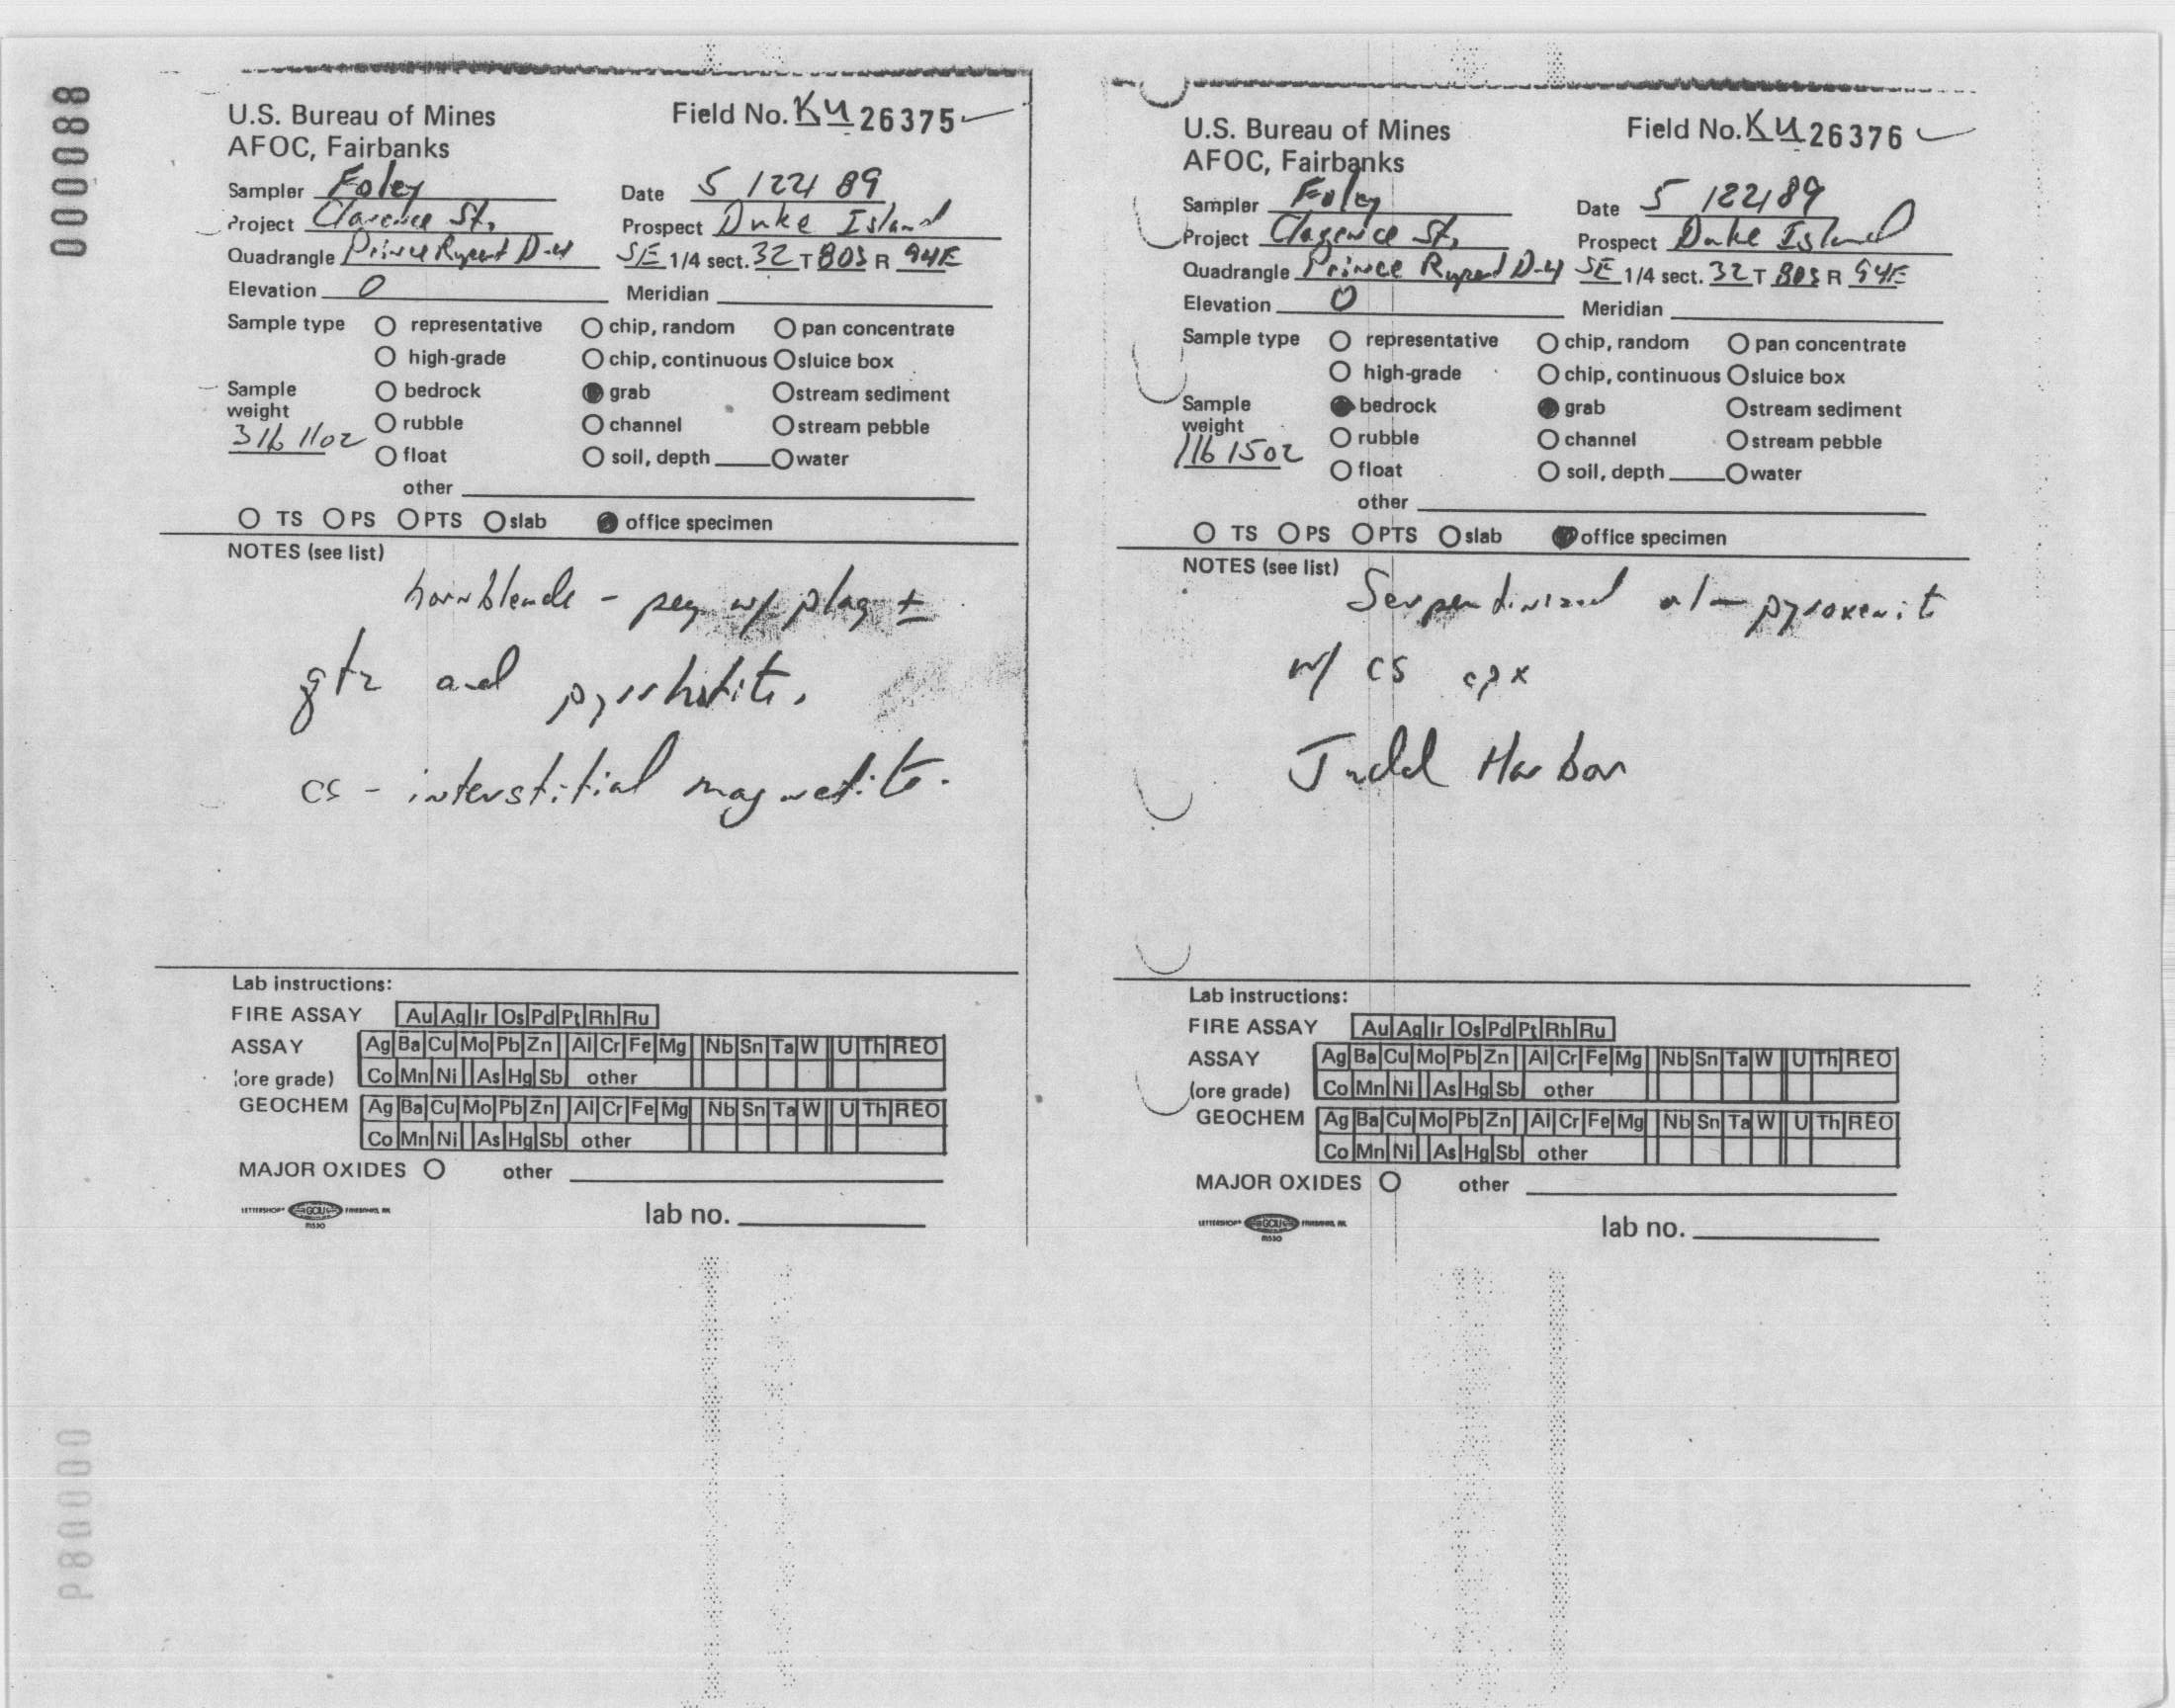 000088
U.S. Bureau of Mines Field No. KU 26375
AFOC, Fairbanks
Sampler Foley Date 5/22/89
Project Clarence St. Prospect Duke Island
Quadrangle Prince Rupert D-4 SE 1/4 sect. 32 T 80S R 94E
Elevation 0 Meridian
Sample type O representative O chip, random O pan concentrate
O high-grade O chip, continuous O sluice box
Sample weight O bedrock ● grab O stream sediment
3 lb 11 oz O rubble O channel O stream pebble
O float O soil, depth O water
other
O TS O PS O PTS O slab ● office specimen
NOTES (see list)
hornblende - peg w/ plag ±
qtz and pyrrhotite.
cs - interstitial magnetite.
Lab instructions:
FIRE ASSAY Au Ag Ir Os Pd Pt Rh Ru
ASSAY Ag Ba Cu Mo Pb Zn Al Cr Fe Mg Nb Sn Ta W U Th REO
(ore grade) Co Mn Ni As Hg Sb other
GEOCHEM Ag Ba Cu Mo Pb Zn Al Cr Fe Mg Nb Sn Ta W U Th REO
Co Mn Ni As Hg Sb other
MAJOR OXIDES O other
LETTERSHOP GCIU FAIRBANKS, AK.
lab no.
U.S. Bureau of Mines Field No. KU 26376
AFOC, Fairbanks
Sampler Foley Date 5/22/89
Project Clarence St. Prospect Duke Island
Quadrangle Prince Rupert D-4 SE 1/4 sect. 32 T 80S R 94E
Elevation 0 Meridian
Sample type O representative O chip, random O pan concentrate
O high-grade O chip, continuous O sluice box
Sample weight ● bedrock ● grab O stream sediment
1 lb 15 oz O rubble O channel O stream pebble
O float O soil, depth O water
other
O TS O PS O PTS O slab ● office specimen
NOTES (see list)
Serpentinized ol-pyroxenite
w/ cs cpx
Judd Harbor
Lab instructions:
FIRE ASSAY Au Ag Ir Os Pd Pt Rh Ru
ASSAY Ag Ba Cu Mo Pb Zn Al Cr Fe Mg Nb Sn Ta W U Th REO
(ore grade) Co Mn Ni As Hg Sb other
GEOCHEM Ag Ba Cu Mo Pb Zn Al Cr Fe Mg Nb Sn Ta W U Th REO
Co Mn Ni As Hg Sb other
MAJOR OXIDES O other
LETTERSHOP GCIU FAIRBANKS, AK.
lab no.